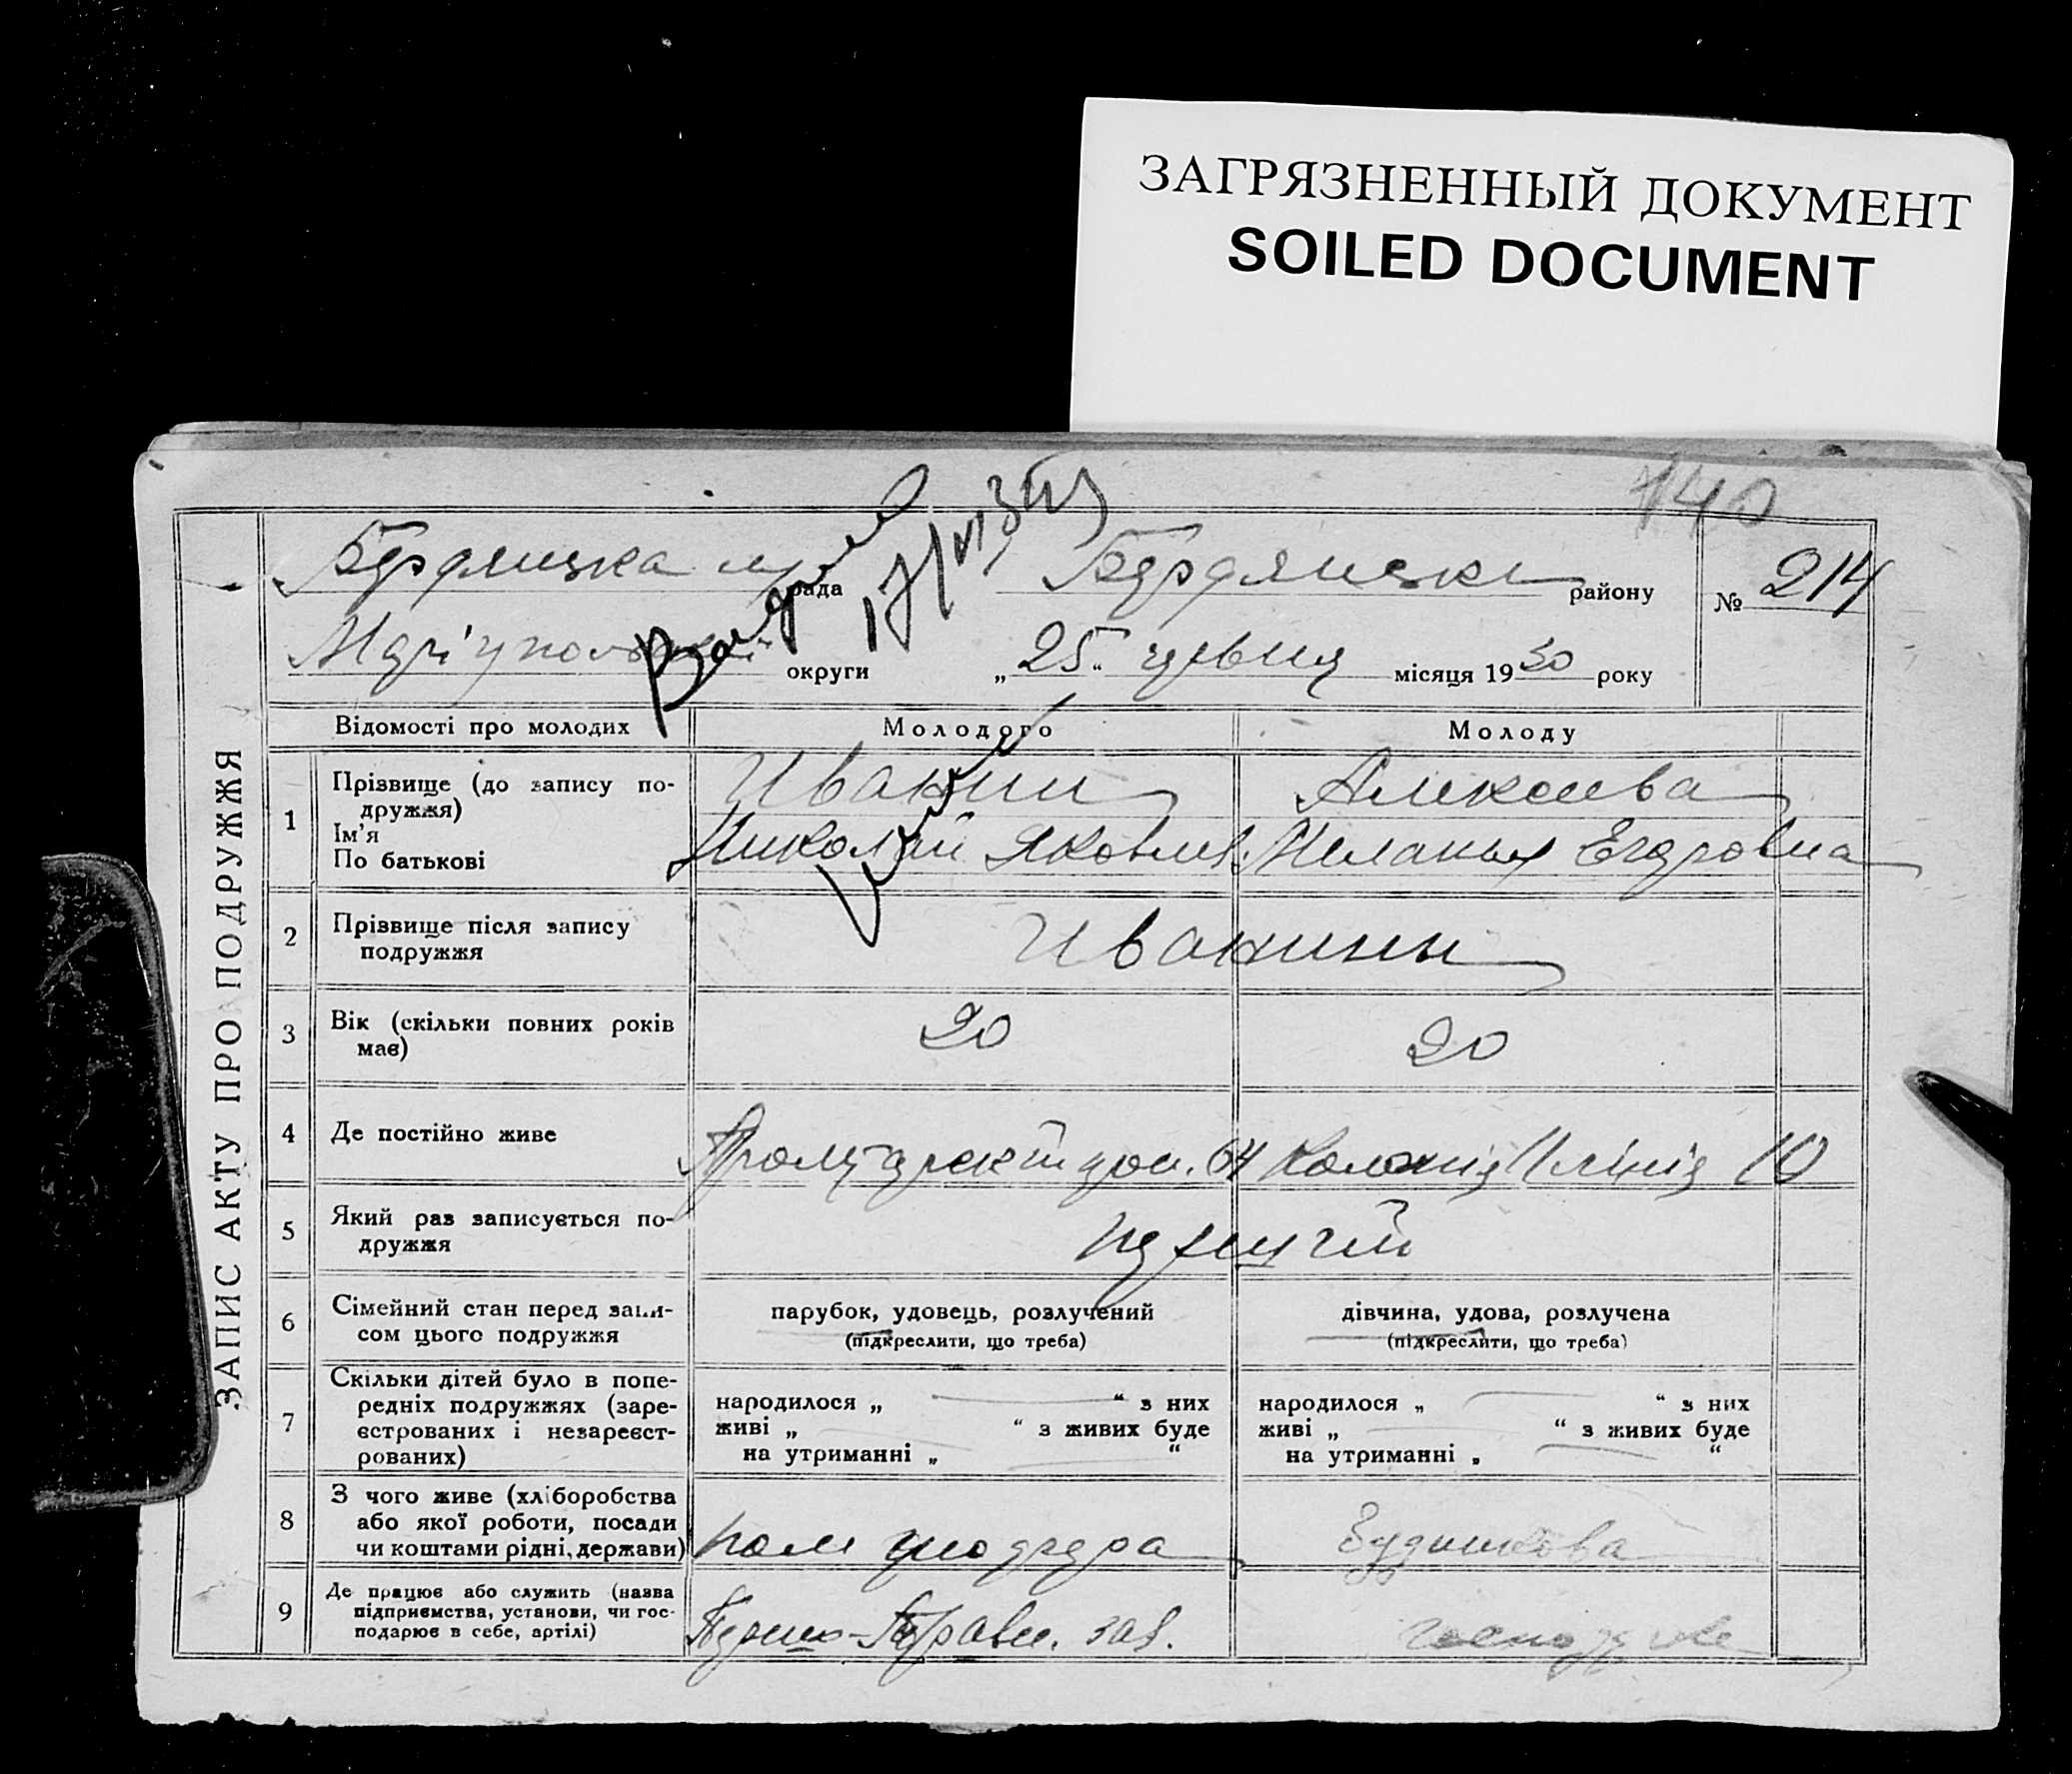 ЗАГРЯЗНЕННЫЙ ДОКУМЕНТ
SOILED DOCUMENT
140
Бердянська рада Бердянськ району № 214
Маріупольської округи „25“ червня місяця 1930 року
ЗАПИС АКТУ ПРО ПОДРУЖЖЯ
Відомості про молодих Молодого Молоду
1 Прізвище (до запису по-
дружжя)
Ім'я
По батькові
Иванин Алексеева
Николай Яковлев. Меланья Егоровна
2 Прізвище після запису
подружжя
Иванины
3 Вік (скільки повних років
має)
20 20
4 Де постійно живе
64 Колонія лінія 10
5 Який раз записується по-
дружжя
6 Сімейний стан перед запи-
сом цього подружжя
парубок, удовець, розлучений
(підкреслити, що треба)
дівчина, удова, розлучена
(підкреслити, що треба)
7 Скільки дітей було в попе-
редніх подружжях (заре-
єстрованих і незареєст-
рованих)
народилося „ “ з них
живі „ “ з живих буде
на утриманні „ “
народилося „ “ з них
живі „ “ з живих буде
на утриманні „ “
8 З чого живе (хліборобства
або якої роботи, посади
чи коштами рідні, держави)
9 Де працює або служить (назва
підприємства, установи, чи гос-
подарює в себе, артілі)
зав.